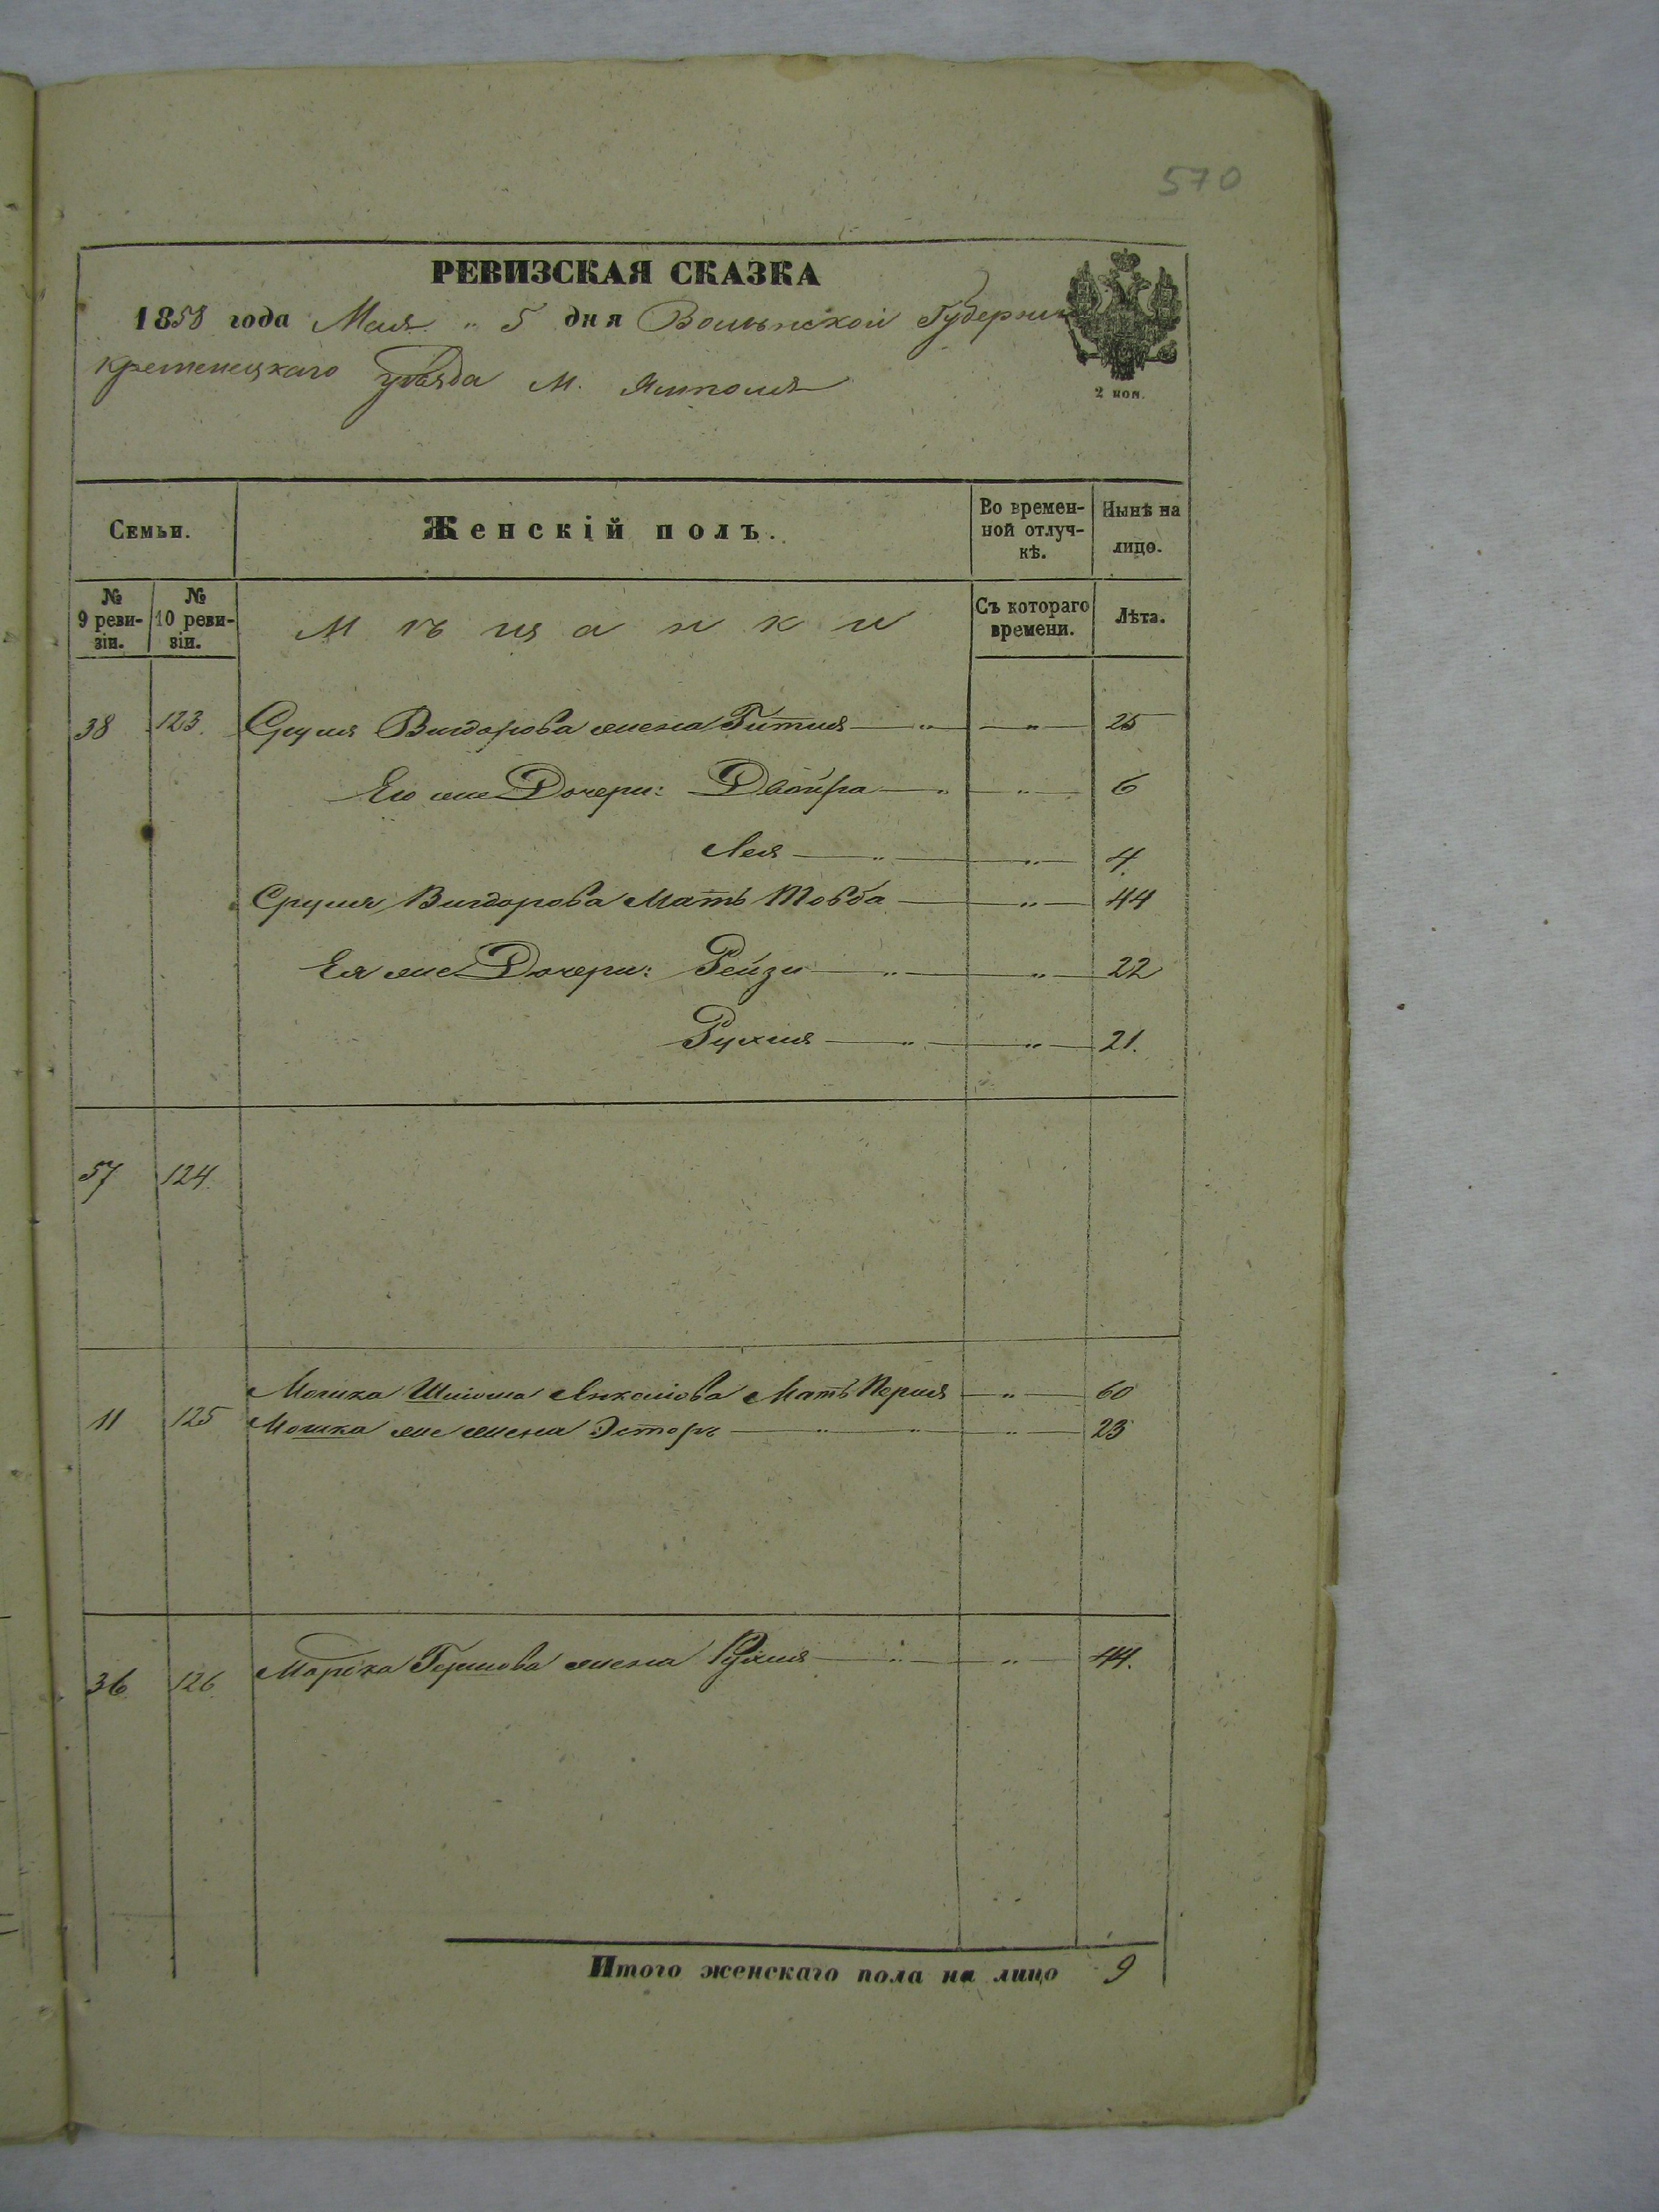 570
РЕВИЗСКАЯ СКАЗКА
1858 года Мая " 5 дня Волынской Губернии
Кременецкаго уѣзда М. Ямполя
2 коп.
Семьи.
Женскій полъ.
Во времен-
ной отлуч-
кѣ.
Нынѣ на
лицо.
№
9 реви-
зіи.
№
10 реви-
зіи.
Мѣщанки
Съ котораго
времени.
Лѣта.
38 123. Сруля Вигдорова жена Гитля — " — " — 25
Его же Дочери: Двойра — " — " — 6
Лея — " — " — 4
Сруля Вигдорова Мать Товба — " — 44
Ея же Дочери: Рейзи — " — " — 22
Рухля — " — " — 21.
57 124.
Мошка Шлiома Анкелiова Мать Перля — " — 60
11 125 Мошка же жена Эстеръ — " — " — " — 23
36 126. Марка Гершова жена Рухля — " — " — 44.
Итого женскаго пола на лицо 9